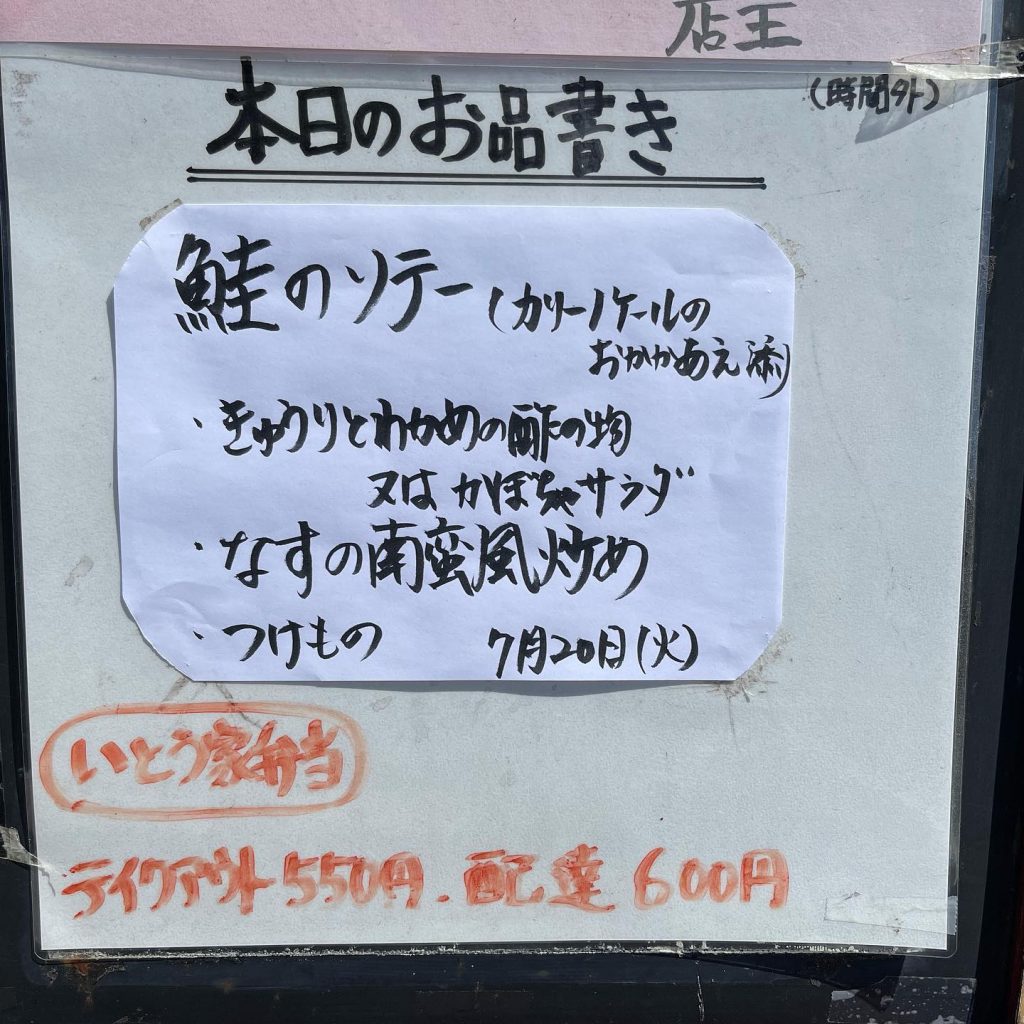 店主
(時間外)
本日のお品書き
鮭のソテー(カリーノケールの
おかかあえ添)
・きゅうりとわかめの酢の物
又はかぼちゃサラダ
・なすの南蛮風炒め
・つけもの 7月20日(火)
いとう家弁当
テイクアウト550円.配達600円